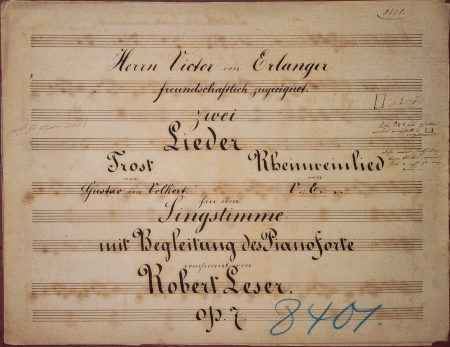 8401.
Herrn Victor von Erlanger
freundschaftlich zugeignet.
zwei
Lieder
Trost Rheinweinlied
von von
Gustav von Volkert V. E.
für eine
Singstimme
mit Begleitung des Pianoforte
componirt von
Robert Leser.
op. 7.
8401.